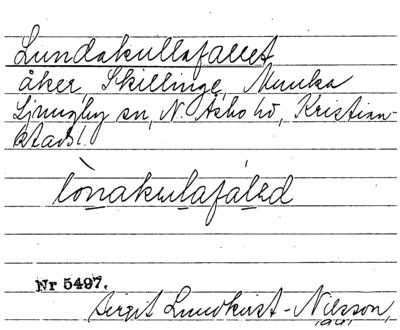 Lundakullafallet
åker, Skillinge, Munka
Ljungby sn, N. Åsbo hd, Kristian-
stads l.
lònakulafáləd
Nr 5497.
Birgit Lundkvist-Nilsson,
1941